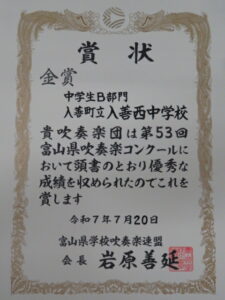 賞状
金賞
中学生B部門
入善町立入善西中学校
貴吹奏楽団は第53回
富山県吹奏楽コンクールに
おいて頭書のとおり優秀な
成績を収められたのでこれを
賞します
令和7年7月20日
富山県学校吹奏楽連盟
会長 岩原善延